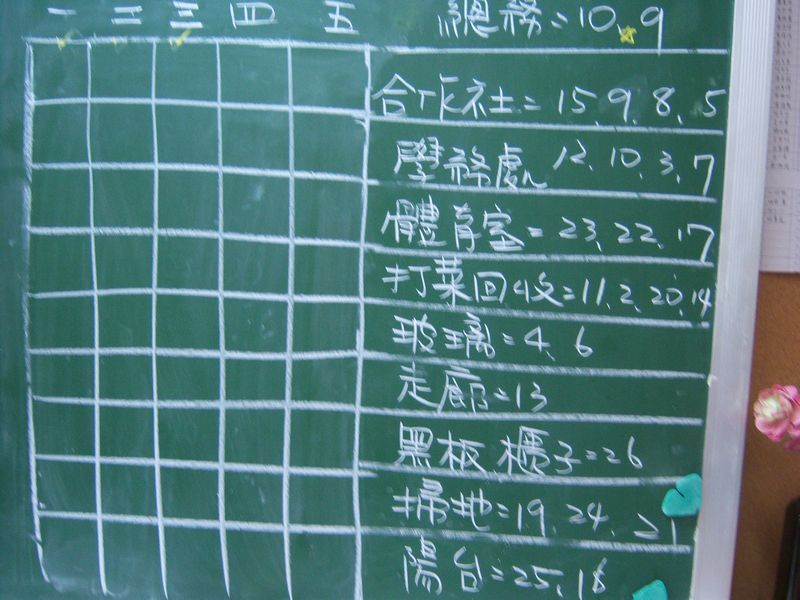 一 二 三 四 五 總務=10、9
合作社=15、9、8、5
學務處 12、10、3、7
體育室=23、22、17
打菜回收=11、2、20、14
玻璃=4、6
走廊=13
黑板 櫃子=26
掃地=19、24、21
陽台=25、18